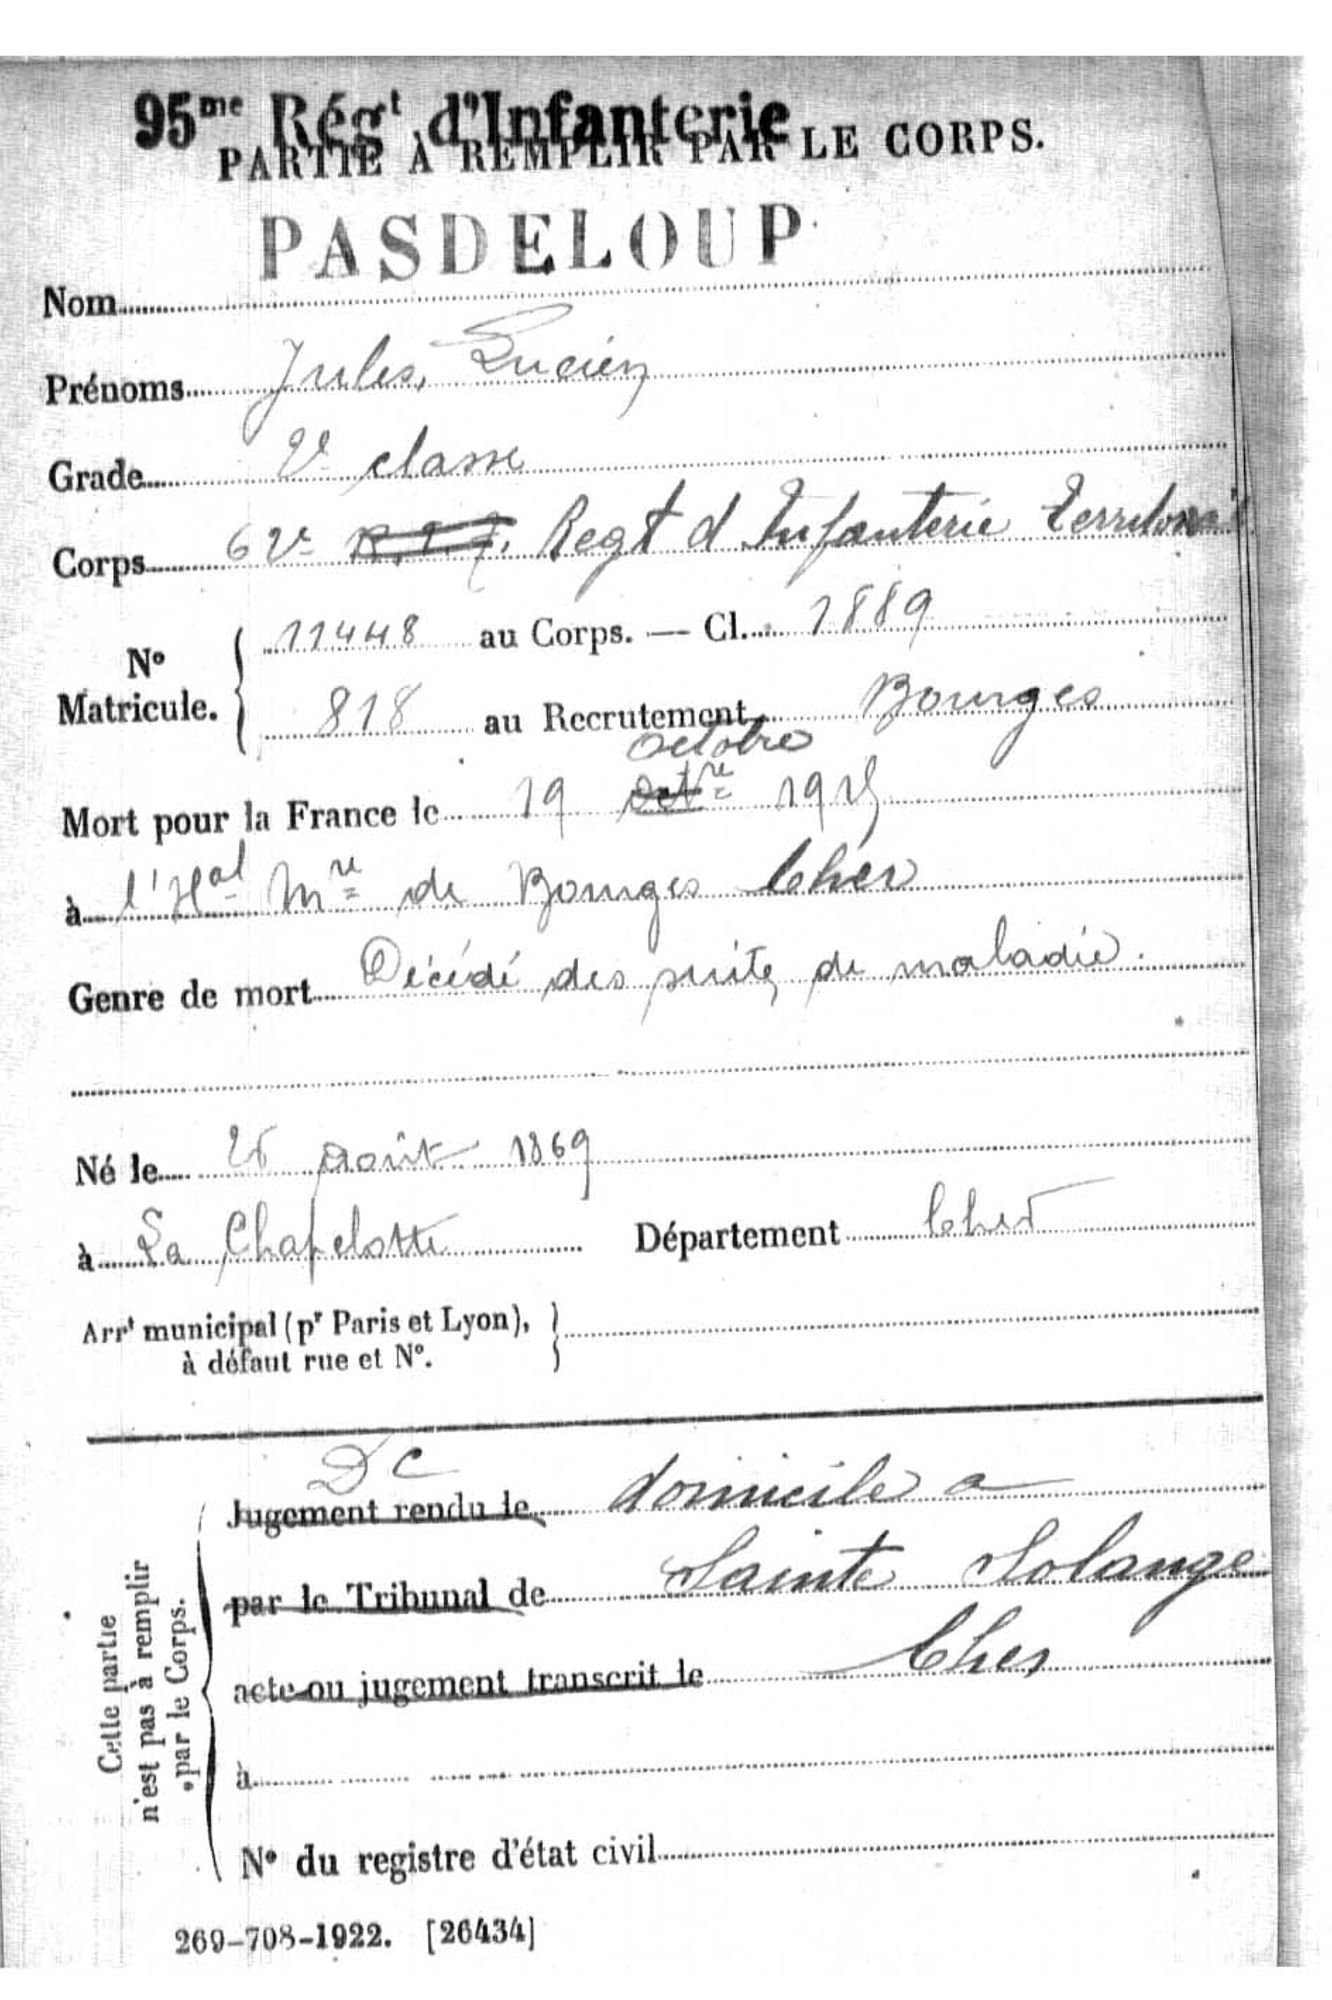 95me Régt d'Infanterie
PARTIE A REMPLIR PAR LE CORPS.
PASDELOUP
Nom
Prénoms Jules, Lucien
Grade 2e classe
Corps 62e R.I.T. Regt d Infanterie Territorial
No Matricule. { 11448 au Corps. — Cl. 1889
818 au Recrutement Bourges
octobre
Mort pour la France le 19 Octre 1915
à l'Hal Mre de Bourges Cher
Genre de mort Décédé des suite de maladie.
Né le 26 Août 1869
à La Chapelotte Département Cher
Arrt municipal (pr Paris et Lyon),
à défaut rue et No.
DC
Jugement rendu le domicile a
par le Tribunal de Sainte Solange
acte ou jugement transcrit le Cher
à
No du registre d'état civil
Cette partie
n'est pas à remplir
par le Corps.
269-708-1922. [26434]